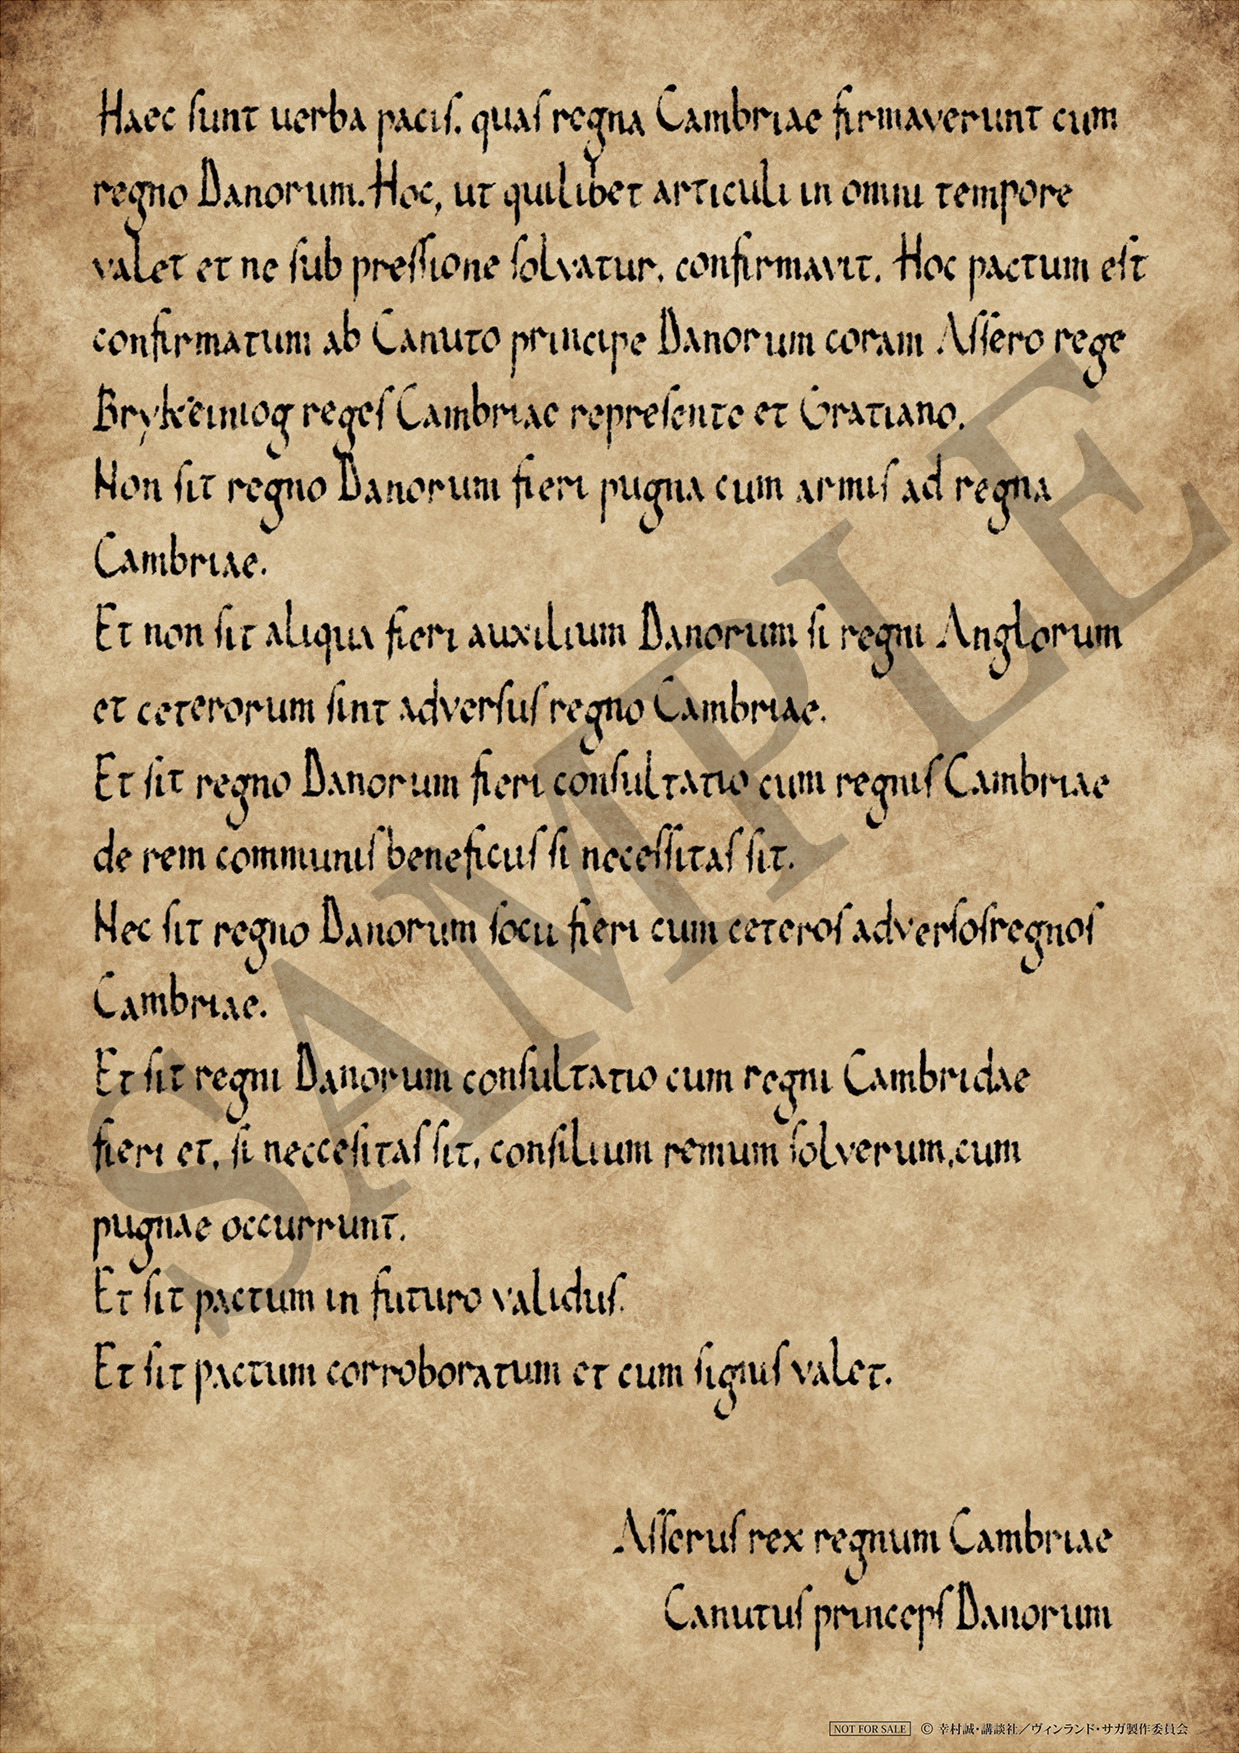 Haec sunt uerba pacis, quas regna Cambriae firmaverunt cum
regno Danorum. Hoc, ut quilibet articuli in omni tempore
valet et ne sub pressione solvatur, confirmavit. Hoc pactum est
confirmatum ab Canuto principe Danorum coram Assero rege
Brykeiniog reges Cambriae represente et Gratiano.
Non sit regno Danorum fieri pugna cum armis ad regna
Cambriae.
Et non sit aliqua fieri auxilium Danorum si regni Anglorum
et ceterorum sint adversus regno Cambriae.
Et sit regno Danorum fieri consultatio cum regnis Cambriae
de rem communis beneficus si necessitas sit.
Nec sit regno Danorum socii fieri cum ceteros adversos regnos
Cambriae.
Et sit regni Danorum consultatio cum regni Cambridae
fieri et, si neccesitas sit, consilium remum solverum, cum
pugnae occurrunt.
Et sit pactum in futuro validus.
Et sit pactum corroboratum et cum signis valet.
Asserus rex regnum Cambriae
Canutus princeps Danorum
SAMPLE
NOT FOR SALE © 幸村誠・講談社／ヴィンランド・サガ製作委員会